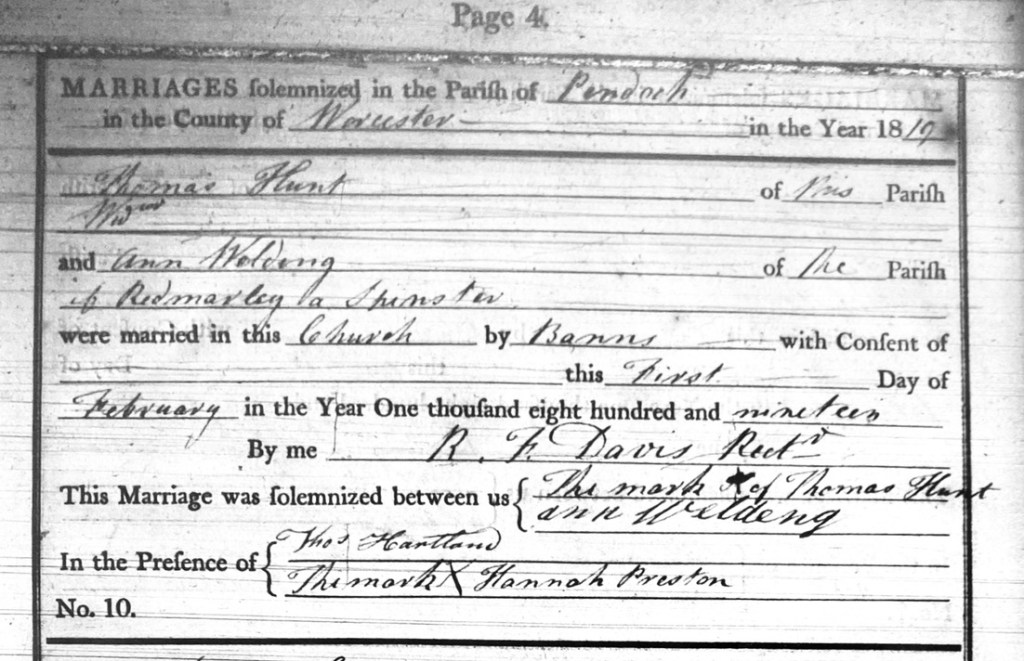 Page 4.
MARRIAGES ſolemnized in the Pariſh of Pendock
in the County of Worcester in the Year 1819
Thomas Hunt of this Pariſh
Widwr
and Ann Welding of the Pariſh
of Redmarley a Spinster
were married in this Church by Banns with Conſent of
this First Day of
February in the Year One thouſand eight hundred and nineteen
By me R. F. Davis Rectr
This Marriage was ſolemnized between us { The mark X of Thomas Hunt
ann Weldeng
In the Preſence of { Thos Hartland
The mark X Hannah Preston
No. 10.